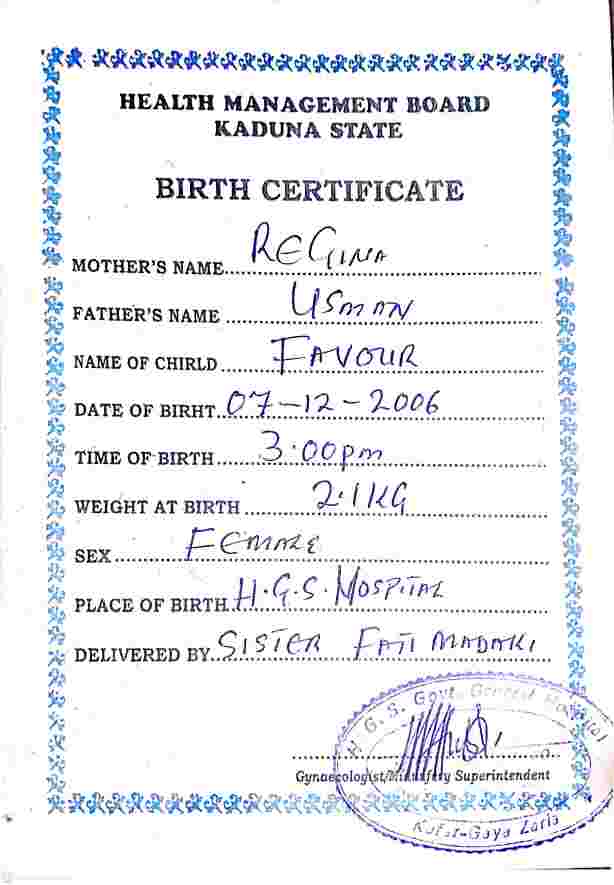 HEALTH MANAGEMENT BOARD
KADUNA STATE
BIRTH CERTIFICATE
MOTHER'S NAME REGINA
FATHER'S NAME USMAN
NAME OF CHIRLD FAVOUR
DATE OF BIRHT 07-12-2006
TIME OF BIRTH 3.00pm
WEIGHT AT BIRTH 2.1KG
SEX FEMALE
PLACE OF BIRTH H.G.S. HOSPITAL
DELIVERED BY SISTER FATI MADAKI
H. G. S. Govt. General Hospital
Gynaecologist/Midwifery Superintendent
Kofar-Gaya Zaria